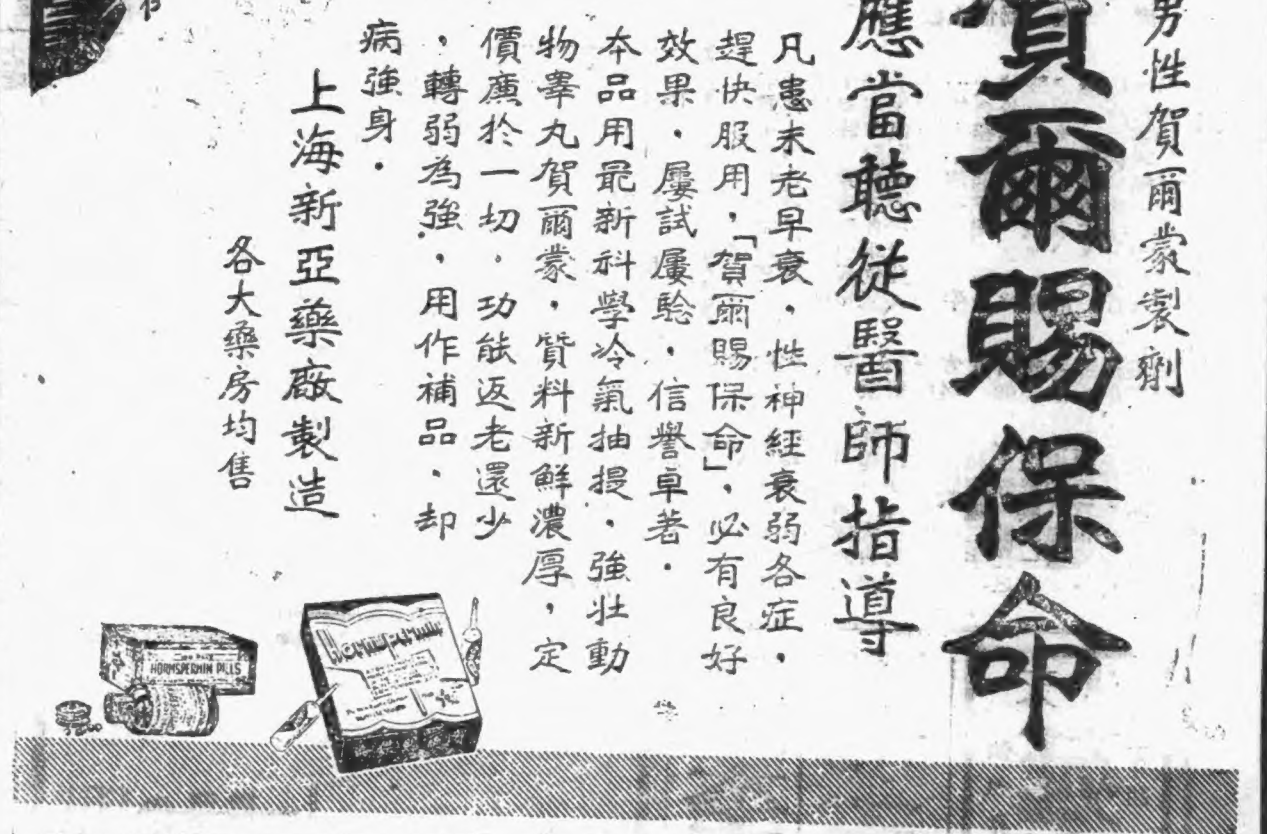 男性賀爾蒙製劑
賀爾賜保命
應當聽從醫師指導
凡患未老早衰．性神經衰弱各症．
趕快服用，「賀爾賜保命」，必有良好
效果．屢試屢驗．信譽卓著．
本品用最新科學冷氣抽提．強壯動
物睪丸賀爾蒙．質料新鮮濃厚，定
價廉於一切．功能返老還少
，轉弱為強，用作補品．却
病強身．
上海新亞藥廠製造
各大藥房均售
HORMSPERMIN PILLS